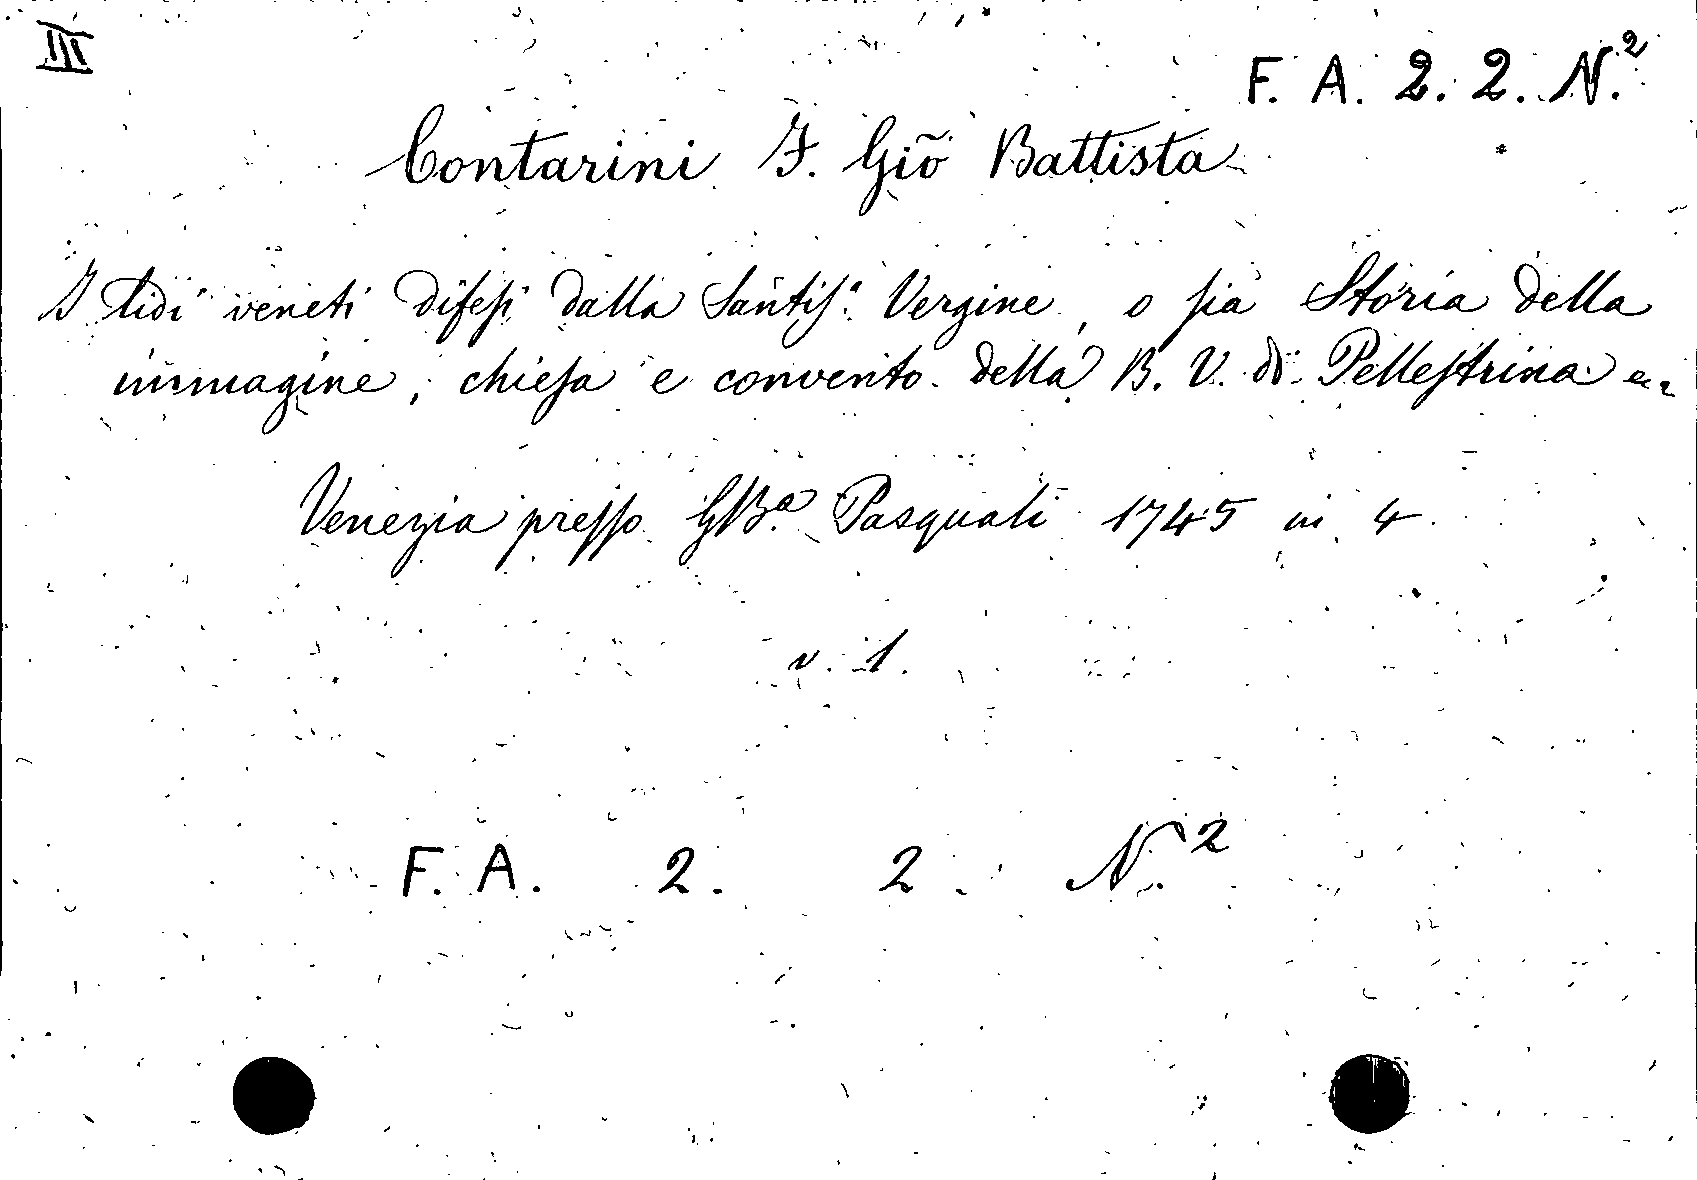 III
F. A. 2. 2. N.²
Contarini F. Giõ Battista
I lidi veneti difesi dalla Santis.ᵃ Vergine, o sia Storia della
immagine, chiesa e convento della B. V. di Pellestrina
Venezia presso GBa. Pasquali 1745 in 4
v. 1.
F. A. 2. 2. N.²